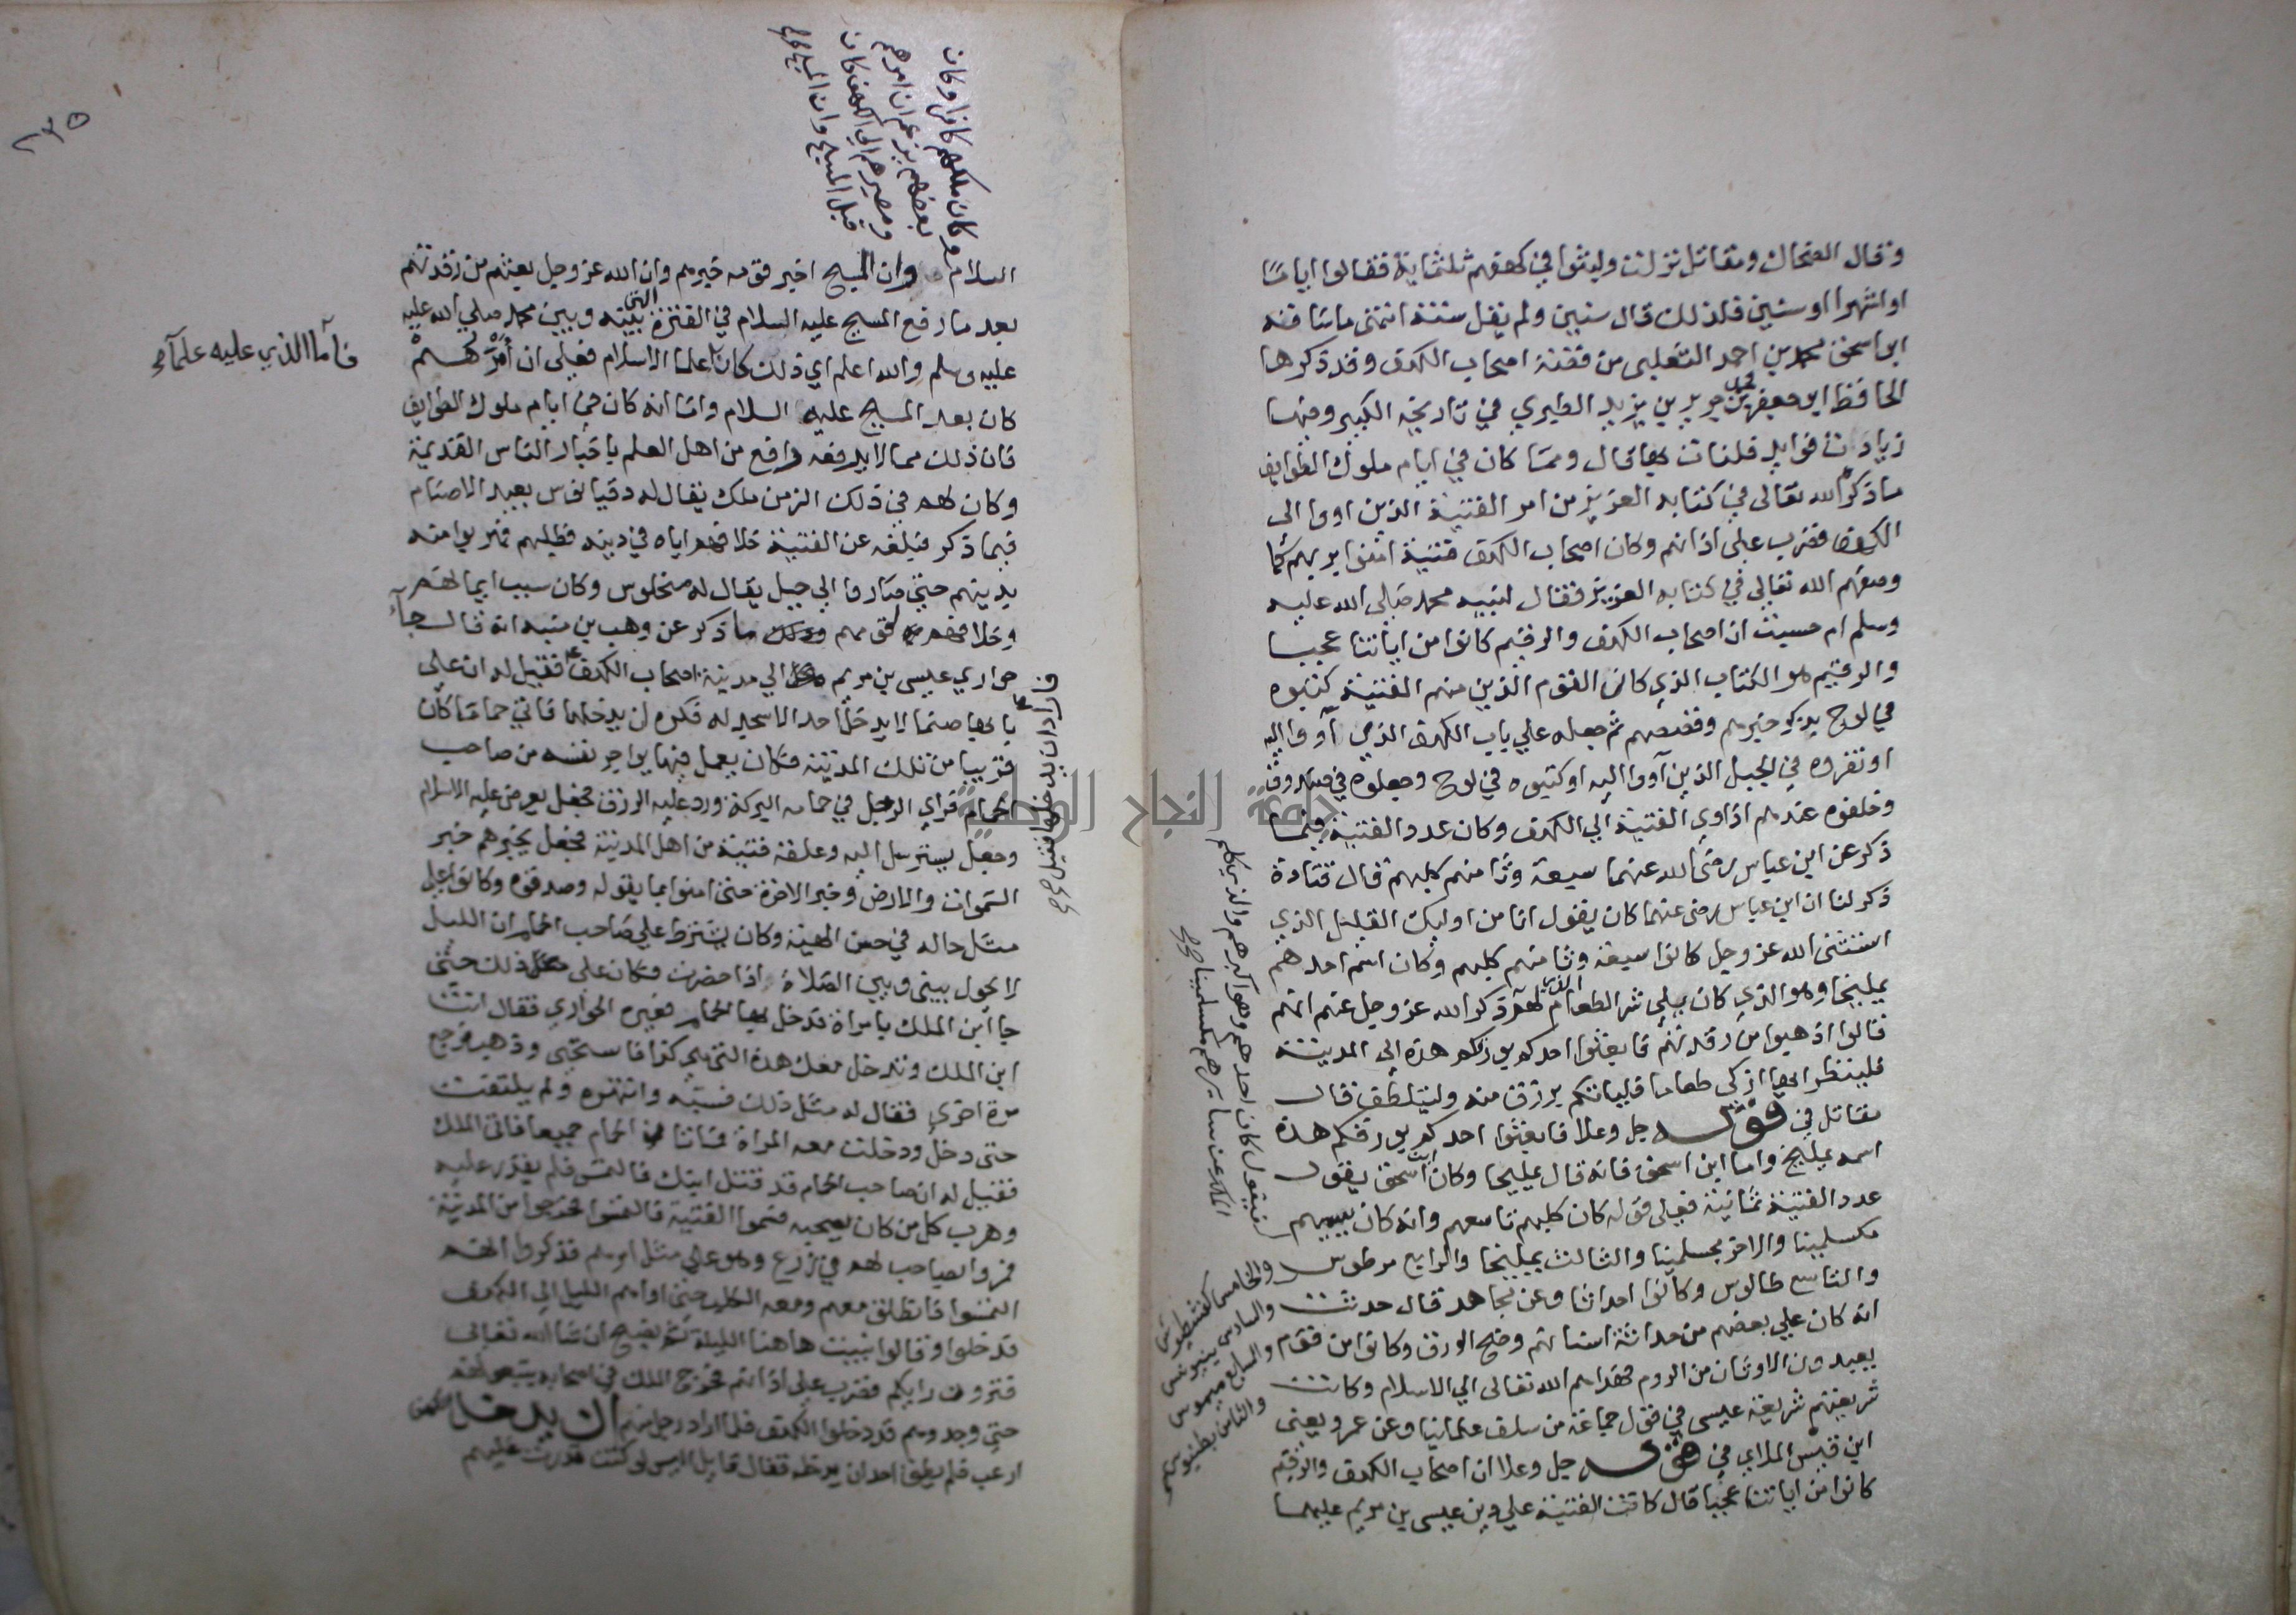 وقال الضحاك ومقاتل نزلت ولبثوا في كهفهم ثلثماية فقالوا اياما
او اشهرا او سنين فلذلك قال سنين ولم يقل سنة انتهى ما ساقه
ابو اسحق محمد بن احمد الثعلبي من قصة اصحاب الكهف وقد ذكرها
الحافظ ابو جعفر محمد بن جرير بن يزيد الطبري في تاريخه الكبير وفيها
زيادات فوايد قال ومما كان في ايام ملوك الطوايف
ما ذكره الله تعالى في كتابه العزيز من امر الفتية الذين اووا الى
الكهف فضرب على اذانهم وكان اصحاب الكهف فتية امنوا بربهم كما
وصفهم الله تعالى في كتابه العزيز فقال لنبيه محمد صلى الله عليه
وسلم ام حسبت ان اصحاب الكهف والرقيم كانوا من اياتنا عجبا
والرقيم هو الكتاب الذي كان القوم الذين منهم الفتية كتبوه
في لوح بذكر خبرهم وقصصهم ثم جعله على باب الكهف الذي آووا اليه
او نقروه في الجبل الذين آووا اليه او كتبوه في لوح وجعلوه في صندوق
وخلفوه عندهم اذ اوي الفتية الي الكهف وكان عدد الفتية فيما
ذكر عن ابن عباس رضي الله عنهما سبعة وثامنهم كلبهم قال قتادة
ذكر لنا ان ابن عباس رضي عنهما كان يقول انا من اوليك القليل الذي
استثنى الله عز وجل كانوا سبعة وثامنهم كلبهم وكان اسم احدهم
يمليخا وهو الذي كان يلي شر الطعام لهم الذي ذكر الله عز وجل عنهم انهم
قالوا اذ هبوا من رقدتهم فابعثوا احدكم بورقكم هذه الى المدينة
فلينظر ايها ازكى طعاما فلياتكم برزق منه وليتلطف قال
مقاتل في قوله جل وعلا فابعثوا احدكم بورقكم هذه
اسمه يمليخ واما ابن اسحق فانه قال يمليخا وكان ابن اسحق يقول
عدد الفتية ثمانية فعلى قوله كان كلبهم تاسعهم وانه كان يسميهم
فيقول كان احدهم وهو اكبرهم والذي كلم
الملك عن سايرهم مكسلمينا صح
مكسلمينا والاخر محسلمينا والثالث يمليخا والرابع مرطوس
والخامس كفشطيوش
والسادس بنيونس
والسابع ميموس
والثامن بطنيوس
والتاسع طالوس وكانوا احداثا وعن مجاهد قال حدثت
انه كان علي بعضهم من حداثة اسنانهم وضح الورق وكانوا من قوم
يعبدون الاوثان من الروم فهداهم الله تعالى الي الاسلام وكانت
شريعتهم شريعة عيسى في قول جماعة من سلف علمائنا وعن عمرو يعني
ابن قيس الملاي في قوله جل وعلا ان اصحاب الكهف والرقيم
كانوا من اياتنا عجبا قال كانت الفتية علي دين عيسى بن مريم عليهما
٢٣٥
السلام وكان ملكهم كافرا وكان
بعضهم يزعم ان امرهم
ومصيرهم الي الكهف كان
قبل المسيح وان المسيح صح
وان المسيح اخبر قومه خبرهم وان الله عز وجل بعثهم من رقدتهم
بعد ما رفع المسيح عليه السلام في الفترة التي بينه وبين محمد صلي الله عليه
عليه وسلم والله اعلم اي ذلك كان علما الاسلام فعلي ان امرهم
فاما الذي عليه علمآء
كان بعد المسيح عليه السلام واما انه كان في ايام ملوك الطوايف
فان ذلك مما لا يدفعه دافع من اهل العلم باخبار الناس القديمة
وكان لهم في ذلك الزمن ملك يقال له دقيانوس يعبد الاصنام
فيما ذكر فبلغه عن الفتية خلافهم اياه في دينه فطلبهم فهربوا منه
بدينهم حتى صاروا الي جبل يقال له منحلوس وكان سبب ايمانهم
وخلافهم لقومهم ما ذكر عن وهب بن منبه انه قال جآء
حواري عيسى بن مريم الي مدينة اصحاب الكهف فقيل له ان على
فاراد ان يدخلها فقيل صح
بابها صنما لا يدخلها احد الا سجد له فكره ان يدخلها فاتي حماما كان
قريبا من تلك المدينة فكان يعمل فيها يواجر نفسه من صاحب
الحمام فراي الرجل في حمامه البركة ورد عليه الرزق فجعل يعرض عليه الاسلام
وجعل يسترسل اليه وعلقه فتية من اهل المدينة فجعل يخبرهم خبر
السموات والارض وخبر الاخرة حتى امنوا بما يقوله وصدقوه وكانوا على
مثل حاله في حسن الهيئة وكان يشترط علي صاحب الحمام ان الليل
لا يحول بيني وبين الصلاة اذا حضرت فكان على ذلك حتى
جا ابن الملك بامراة فدخل بها الحمام فعيره الحواري فقال انت
ابن الملك وتدخل معك هذه التي كذا فاستحيى وذهب فرجع
مرة اخرى فقال له مثل ذلك فسبه وانتهره ولم يلتفت
حتى دخل ودخلت معه المراة فماتا في الحمام جميعا فاتى الملك
فقيل له ان صاحب الحمام قد قتل ابنك فالتمس فلم يقدر عليه
وهرب كل من كان يصحبه فسموا الفتية فالتمسوا فخرجوا من المدينة
فمروا بصاحب لهم في زرع وهو علي مثل امرهم فذكروا انهم
التمسوا فانطلق معهم ومعه الكلب حتى اواهم الليل الى الكهف
فدخلوا وقالوا نبيت هاهنا الليلة ثم نصبح ان شا الله تعالى
فترون رايكم فضرب على اذانهم فخرج الملك في اصحابه يتبعونهم
حتى وجدوهم قد دخلوا الكهف فلما اراد رجل منهم ان يدخل الكهف
ارعب فلم يطق احد ان يدخله فقال قايل اليس لو كنت قدرت عليهم
جامعة النجاح الوطنية